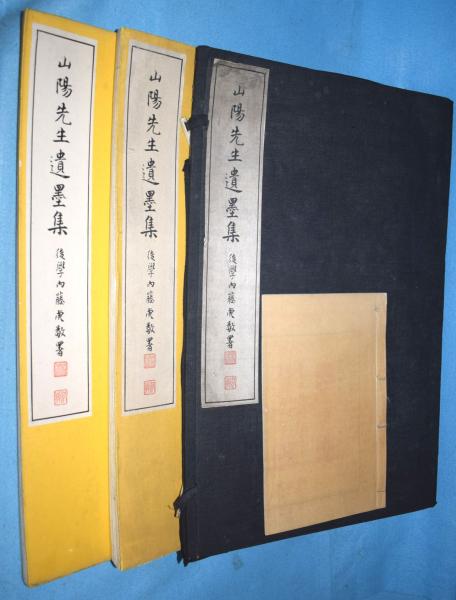 山陽先生遺墨集
後學内藤虎敬署
山陽先生遺墨集
後學内藤虎敬署
山陽先生遺墨集
後學内藤虎敬署